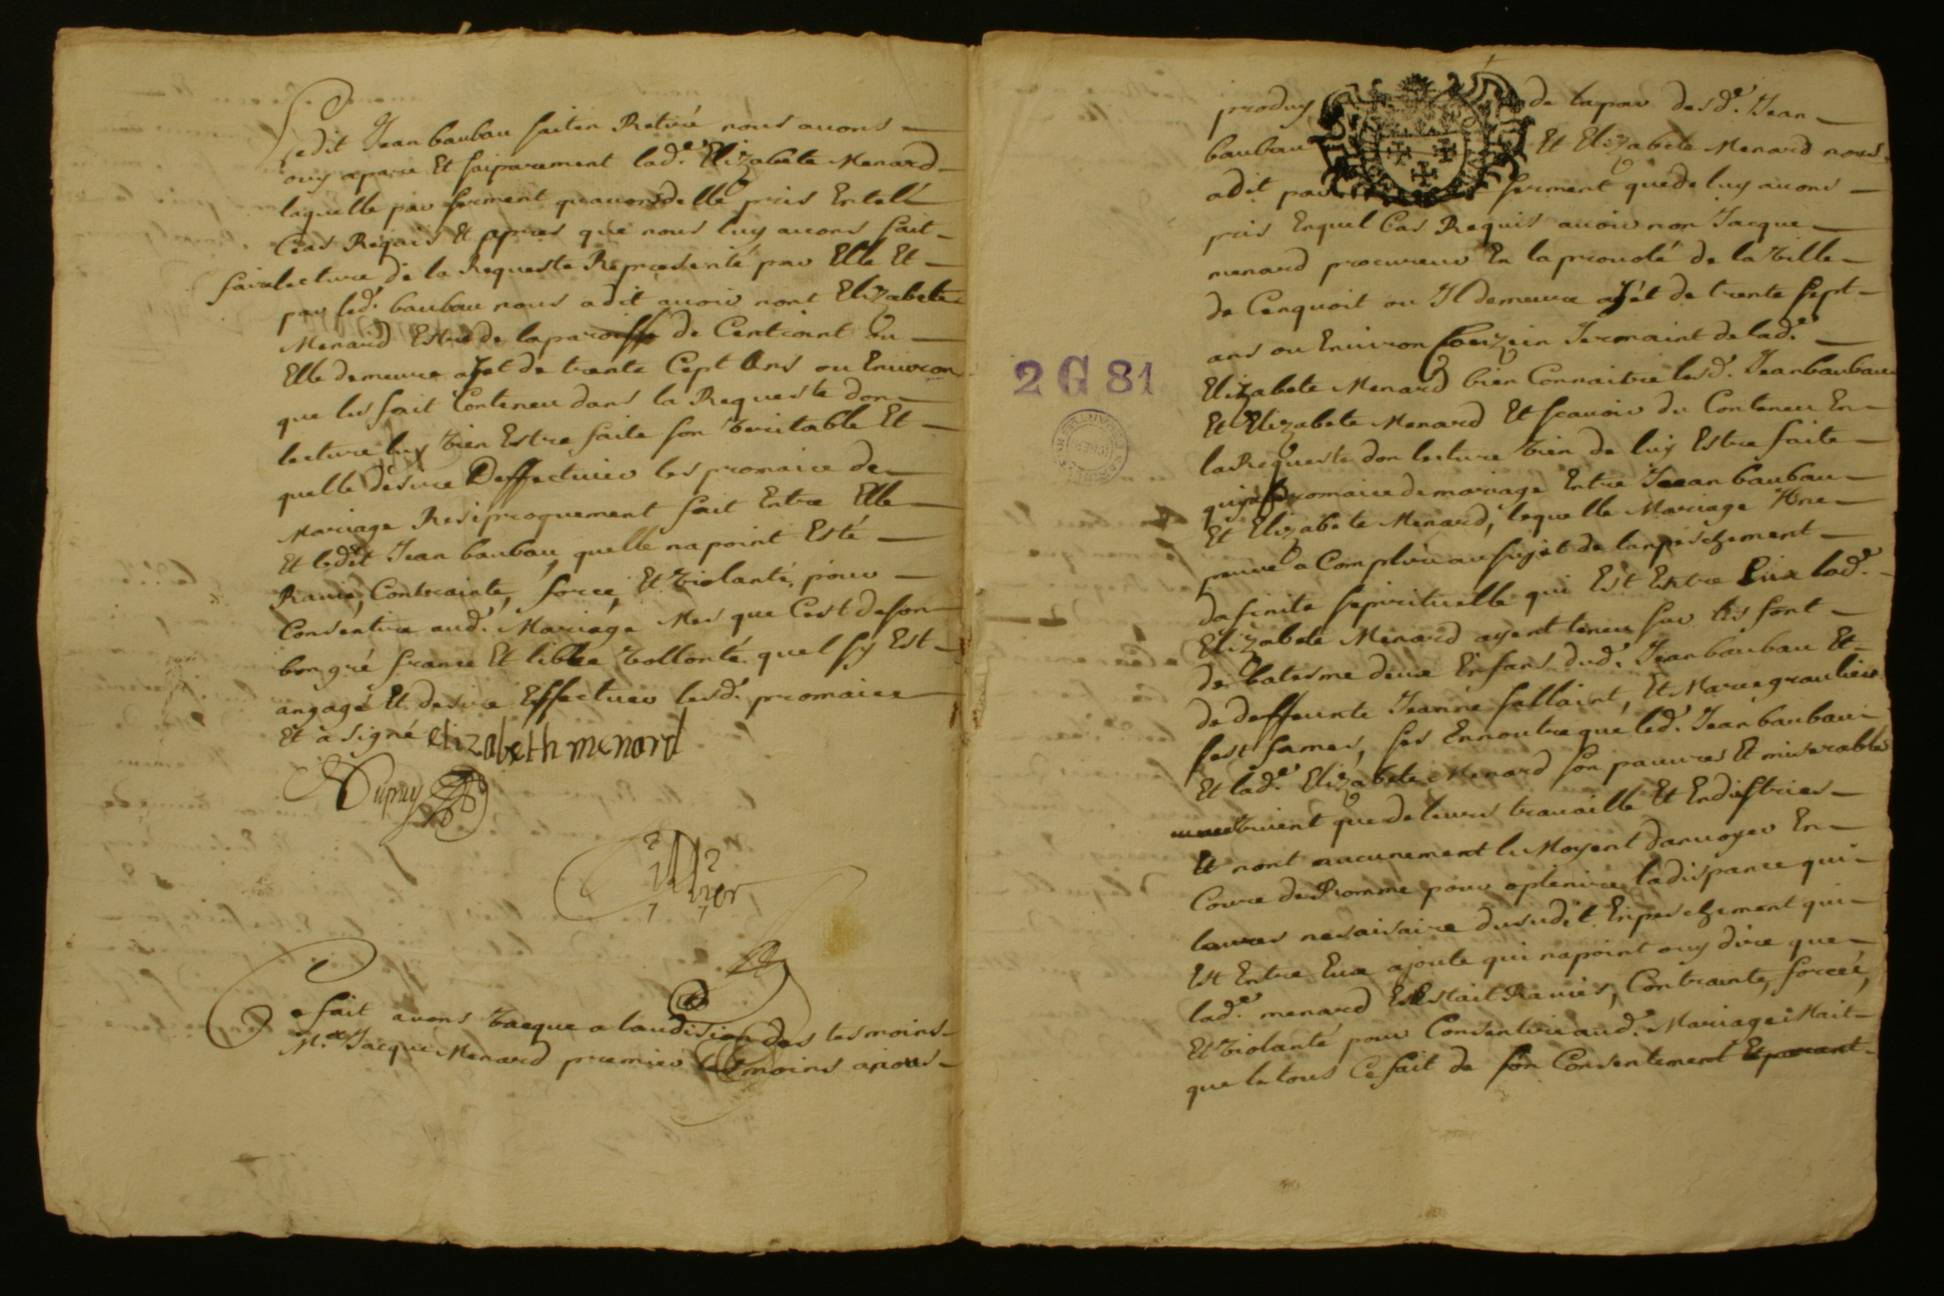 Ledit Jean baubau saiten Retiré nous avons
ouy apare Et saiparement lad.e Elizabete Menard
laquelle par serment quavonsdelle pris Entelle
Cas Requis Et apres que nous luy avons fait
faire lecture de la Requeste Representé par Elle Et
par led. baubau nous a dit avoir nont Elizabete
Menard Estre de la paroisse de
Elle demeure ajét de trente Cept Ans ou Environ
que les fait Conteneu dans la Requeste don
lecture luy vien Estre faite son veritable Et
quelle desire Deffectuier les promaice de
Mariage Resiproquement fait Entre Elle
Et ledit Jean baubau, quelle na point Esté
Ravie, Contrainte, forcé, Et violanté, pour
Consentire aud. Mariage Mes que Cest de son
bon gré franne Et libre vollonté quel sy Est
angagé Et desire Effectuer lesd. promaice
Et a signé elizabeth menard
Dupuy
2 G 81
Ce fait avons vacque a laudision des tesmoins
M.e Jacque Menard premier tesmoins a nous
produy de la par desd. Jean
baubau Et Elizabete Menard nous
a dit par serment que de luy avons
pris Enquel Cas Requis avoir non Jacque
menard procureur En la prevolé de la ville
de Cenquoit ou Il demeure ajét de trente sept
ans ou Environ Couzein Jermaint de lad.e
Elizabete Menard bien Connaitre lesd. Jean baubau
Et Elizabete Menard Et scavoir du Conteneu En
la Requeste don lecture vien de luy Estre faite
promaice de mariage Entre Jean baubau
Et Elizabete Menard, lequelle Mariage One
peuve a Complire au sujét de lanpeschement
dafinite sepirituelle qui Est Entre Eux lad.e
Elizabete Menard ayent teneu sur les font
de batesme deux Enfans dud. Jean baubau Et
de deffeunte Jeanne fallaint, Et Marie graulier
sest fames, Ses Ennoutre que led. Jean baubau
Et lad.e Elizabete Menard son pauvres Et miserables
vivent que de leurs travaille Et Endistries
Et nont aucunement le Moyent danvoyer En
Coure de Romme pour optenire la dispance qui
leures nesaisaire dusudit Enpeschement qui
Est Entre Eux ajoute qui na point ouy dire que
lad.e menard Estait Ravies, Contrainte, forcée,
Et violanté pour Consentire aud. Mariage Mait
que le tous Ce fait de son Consentement